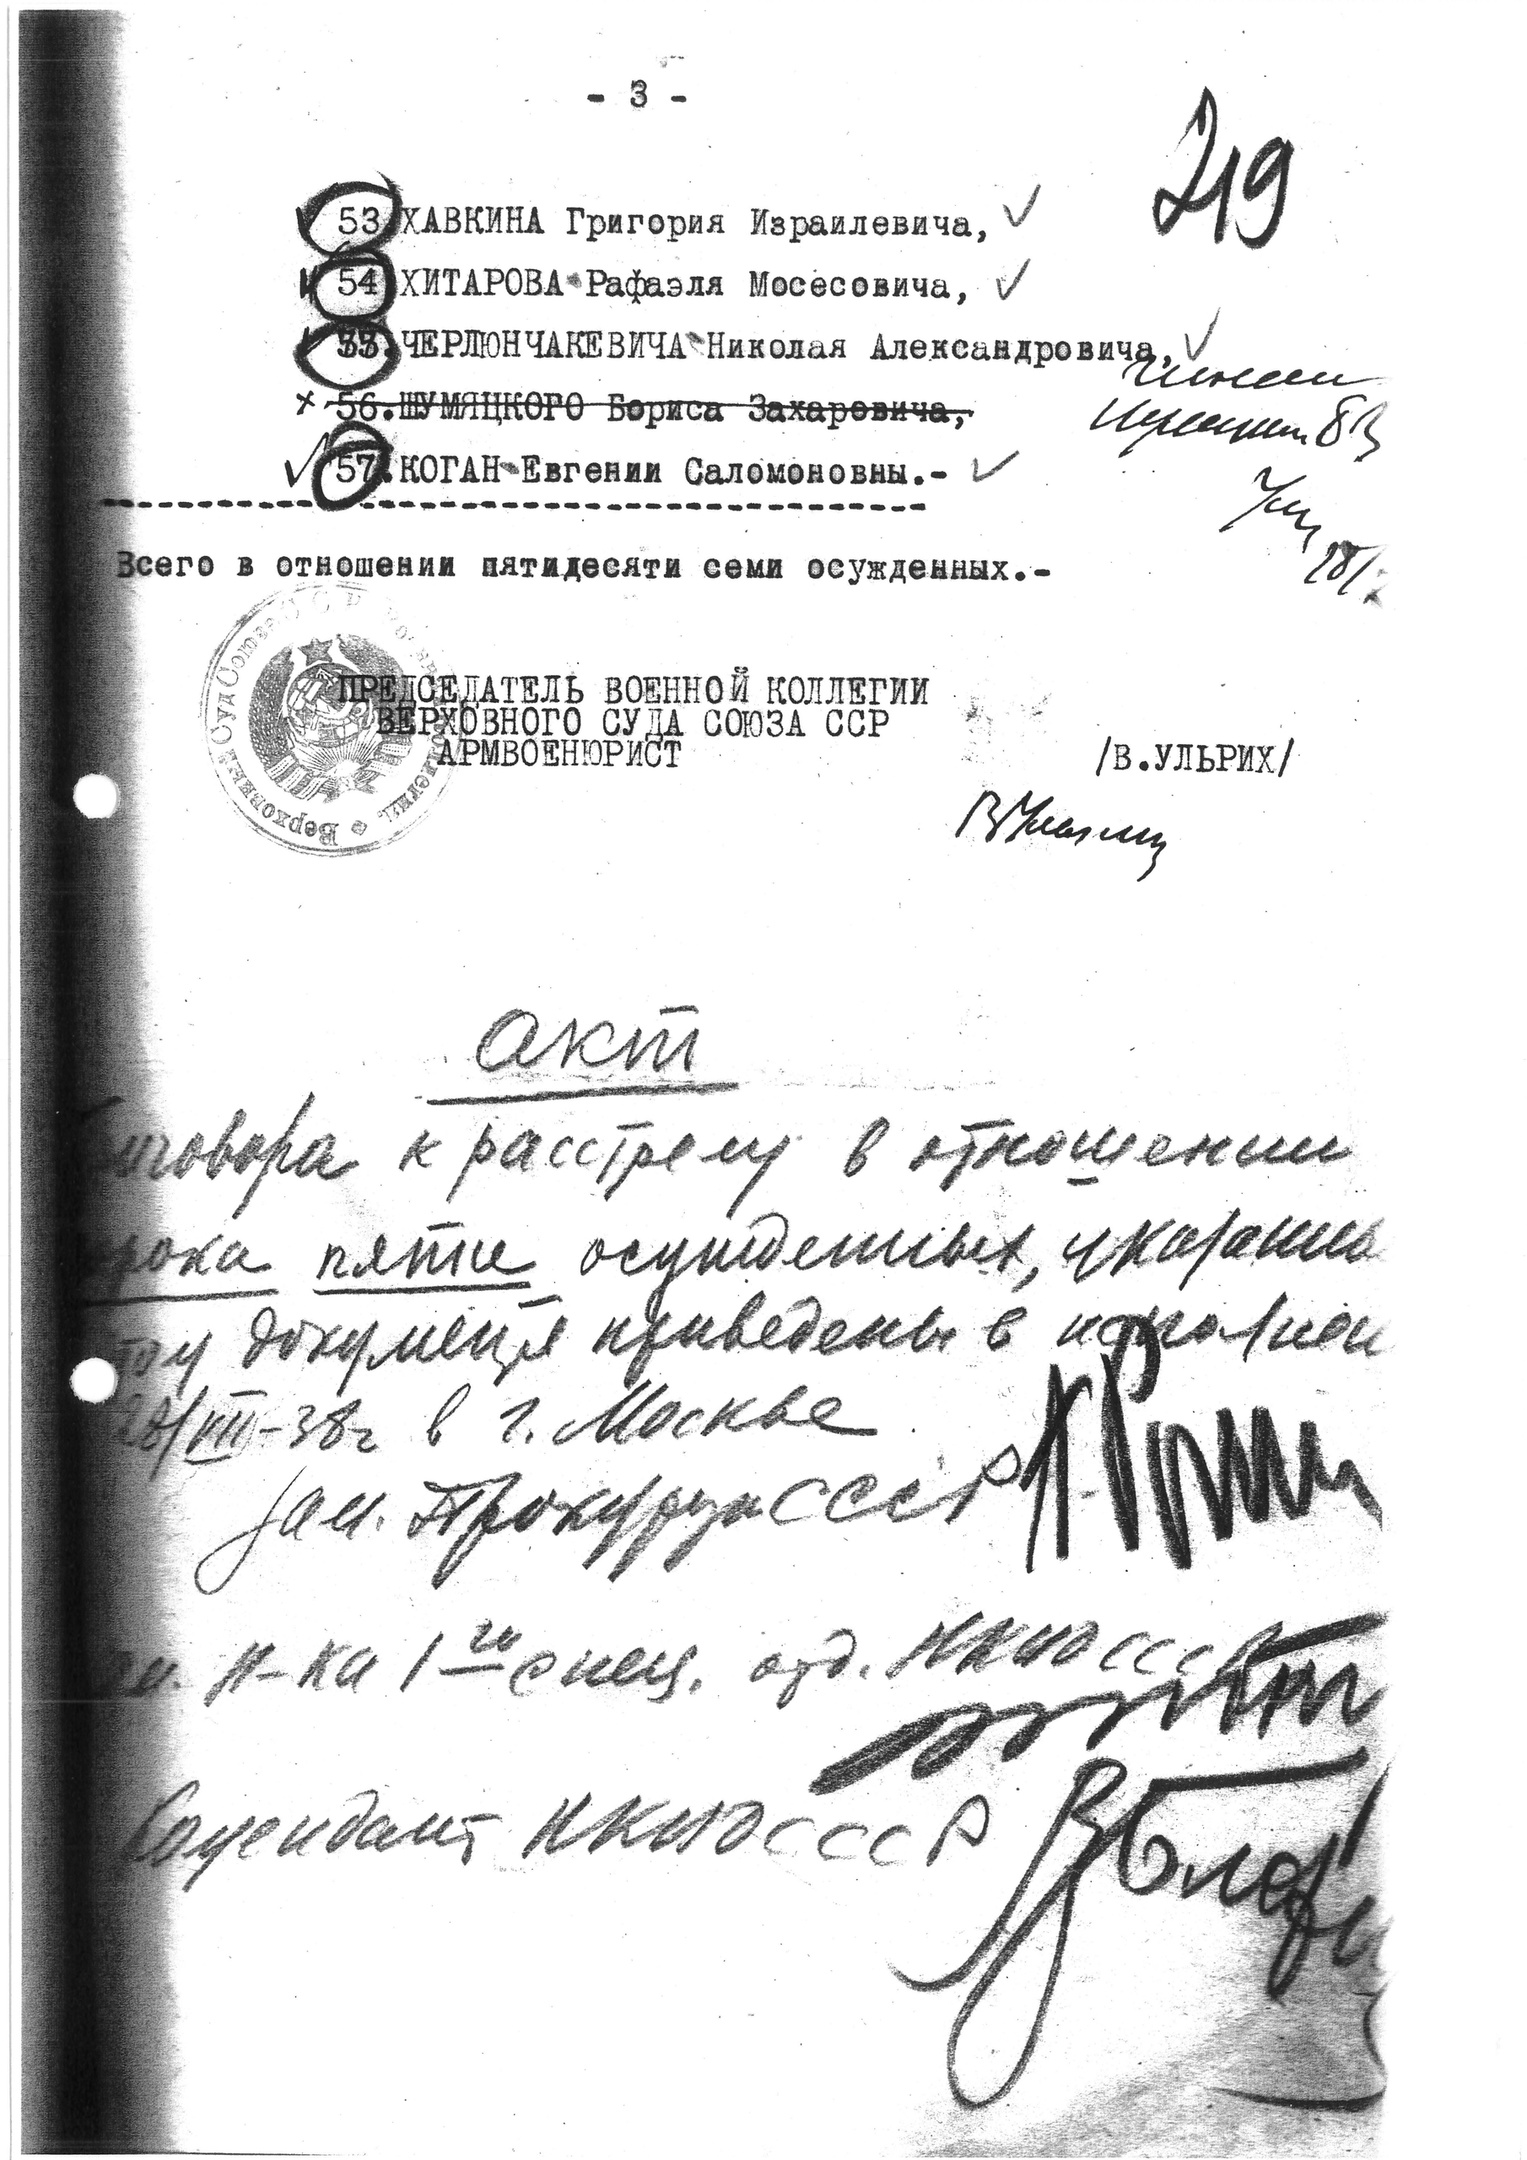 - 3 -
219
53 ХАВКИНА Григория Израилевича,
54 ХИТАРОВА Рафаэля Мосесовича,
55. ЧЕРЛЮНЧАКЕВИЧА Николая Александровича,
56. ШУМЯЦКОГО Бориса Захаровича,
57. КОГАН Евгении Саломоновны.-
Всего в отношении пятидесяти семи осужденных.-
ПРЕДСЕДАТЕЛЬ ВОЕННОЙ КОЛЛЕГИИ
ВЕРХОВНОГО СУДА СОЮЗА ССР
АРМВОЕНЮРИСТ
/В.УЛЬРИХ/
Верховный Суд Союза ССР
Акт
иговора к расстрелу в отношении
рока пяти осужденных, указанны
тому документа приведены в исполнен
28/VII-38г в г. Москве
Зам. Прокурора СССР
зам. н-ка 1го спец. отд. НКВД СССР
Комендант НКВД СССР